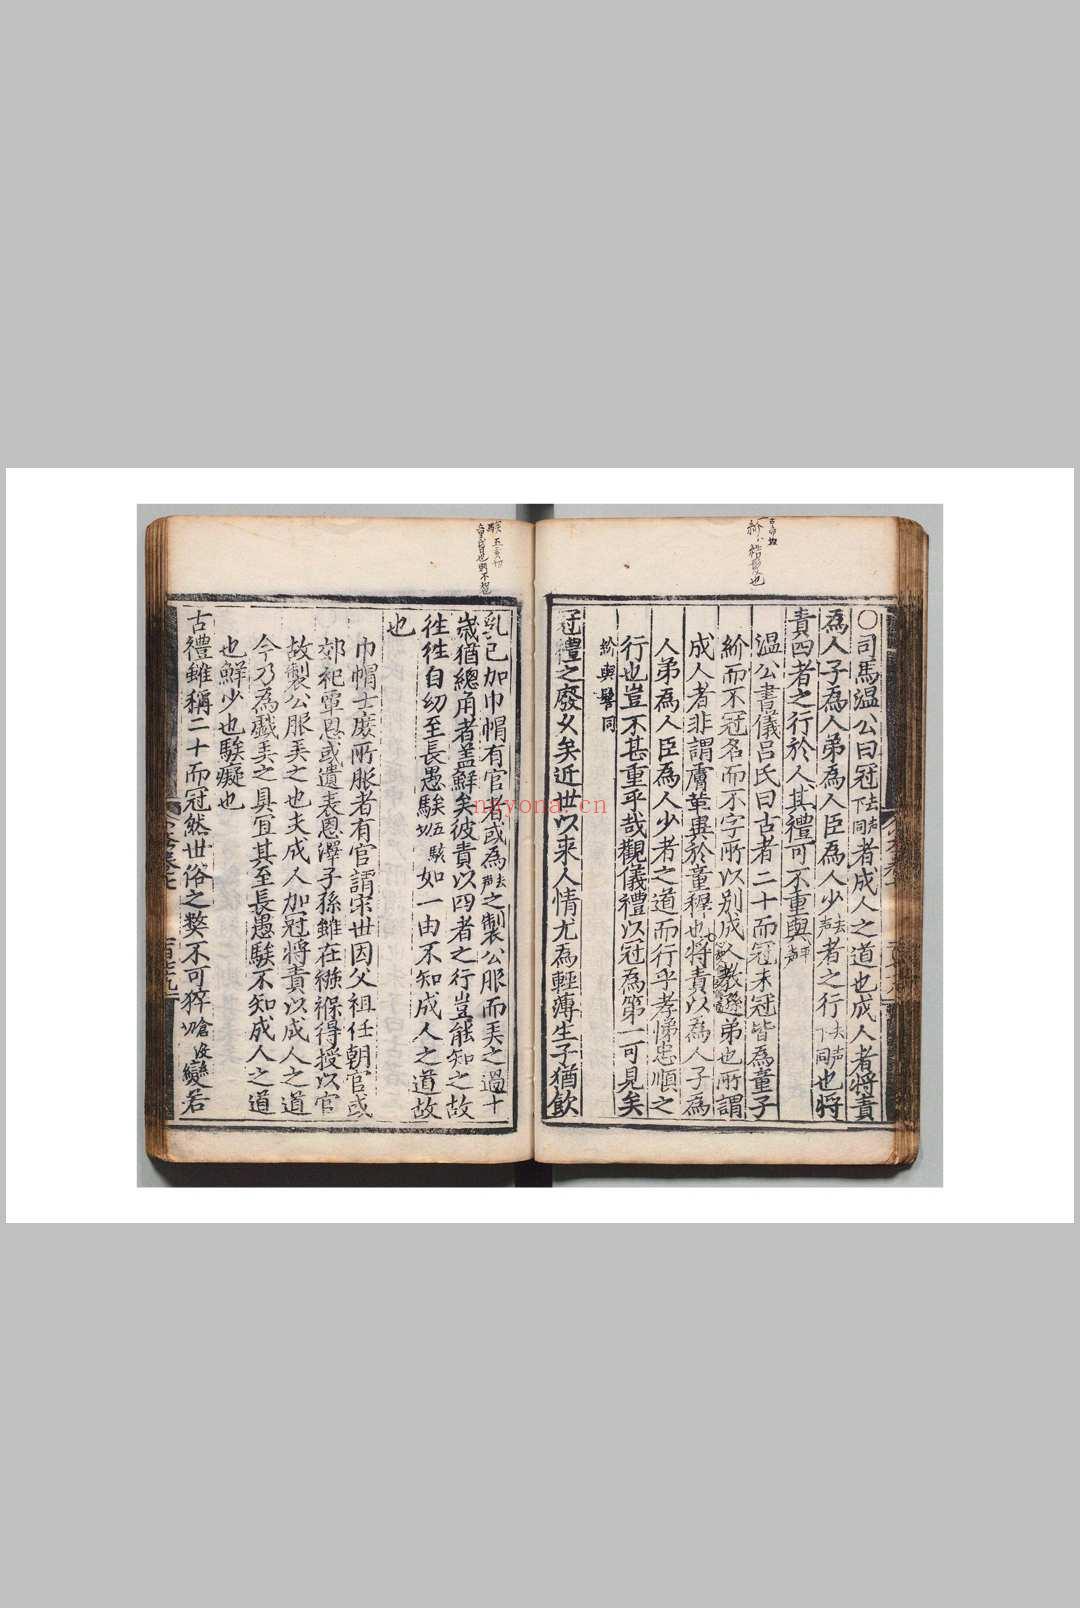 〇司馬温公曰冠去声下同者成人之道也成人者將責
爲人子爲人弟爲人臣爲人少去声者之行去声下同也將
責四者之行於人其禮可不重與平声
温公書儀吕氏曰古者二十而冠未冠皆爲童子
紒而不冠名而不字所以别成人教孫弟也所謂
成人者非謂膚革異於童穉也將責以爲人子爲
人弟爲人臣爲人少者之道而行乎孝悌忠順之
行也豈不甚重乎哉觀儀禮以冠爲第一可見矣
紒與髻同
冠禮之廢乆矣近世以来人情尤爲輕薄生子猶飲
乳已加巾帽有官者或爲去声之製公服而弄之過十
歲猶總角者盖鮮矣彼責以四者之行豈能知之故
徃徃自幼至長愚騃五駭切如一由不知成人之道故
也
巾帽士庶所服者有官謂宋世因父祖任朝官或
郊祀覃恩或遺表恩澤子孫雖在襁褓得授以官
故製公服弄之也夫成人加冠將責以成人之道
今乃爲戲弄之具宜其至長愚騃不知成人之道
也鮮少也騃癡也
古禮雖稱二十而冠然世俗之弊不可猝倉没切變若
紒结髮也
騃五亥切
nnyona.cn